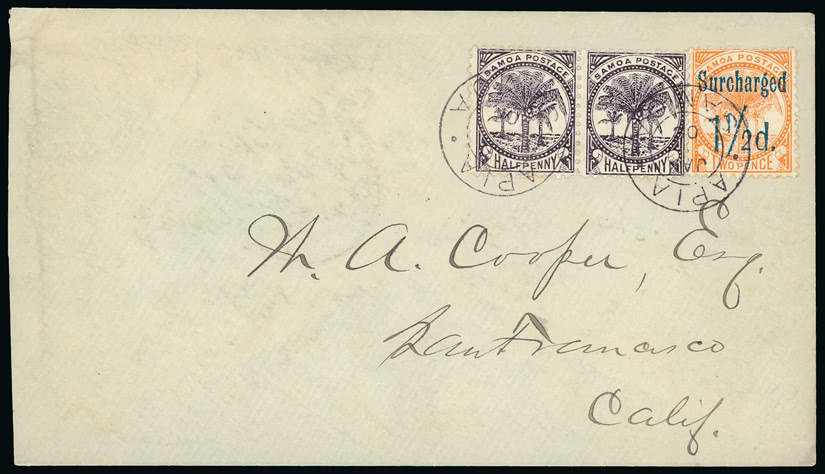 SAMOA POSTAGE
HALFPENNY
SAMOA POSTAGE
HALFPENNY
SAMOA POSTAGE
Surcharged
1½d.
TWO PENCE
APIA
SAMOA
APIA
JA
W. A. Cooper, Esq.
San Francisco
Calif.